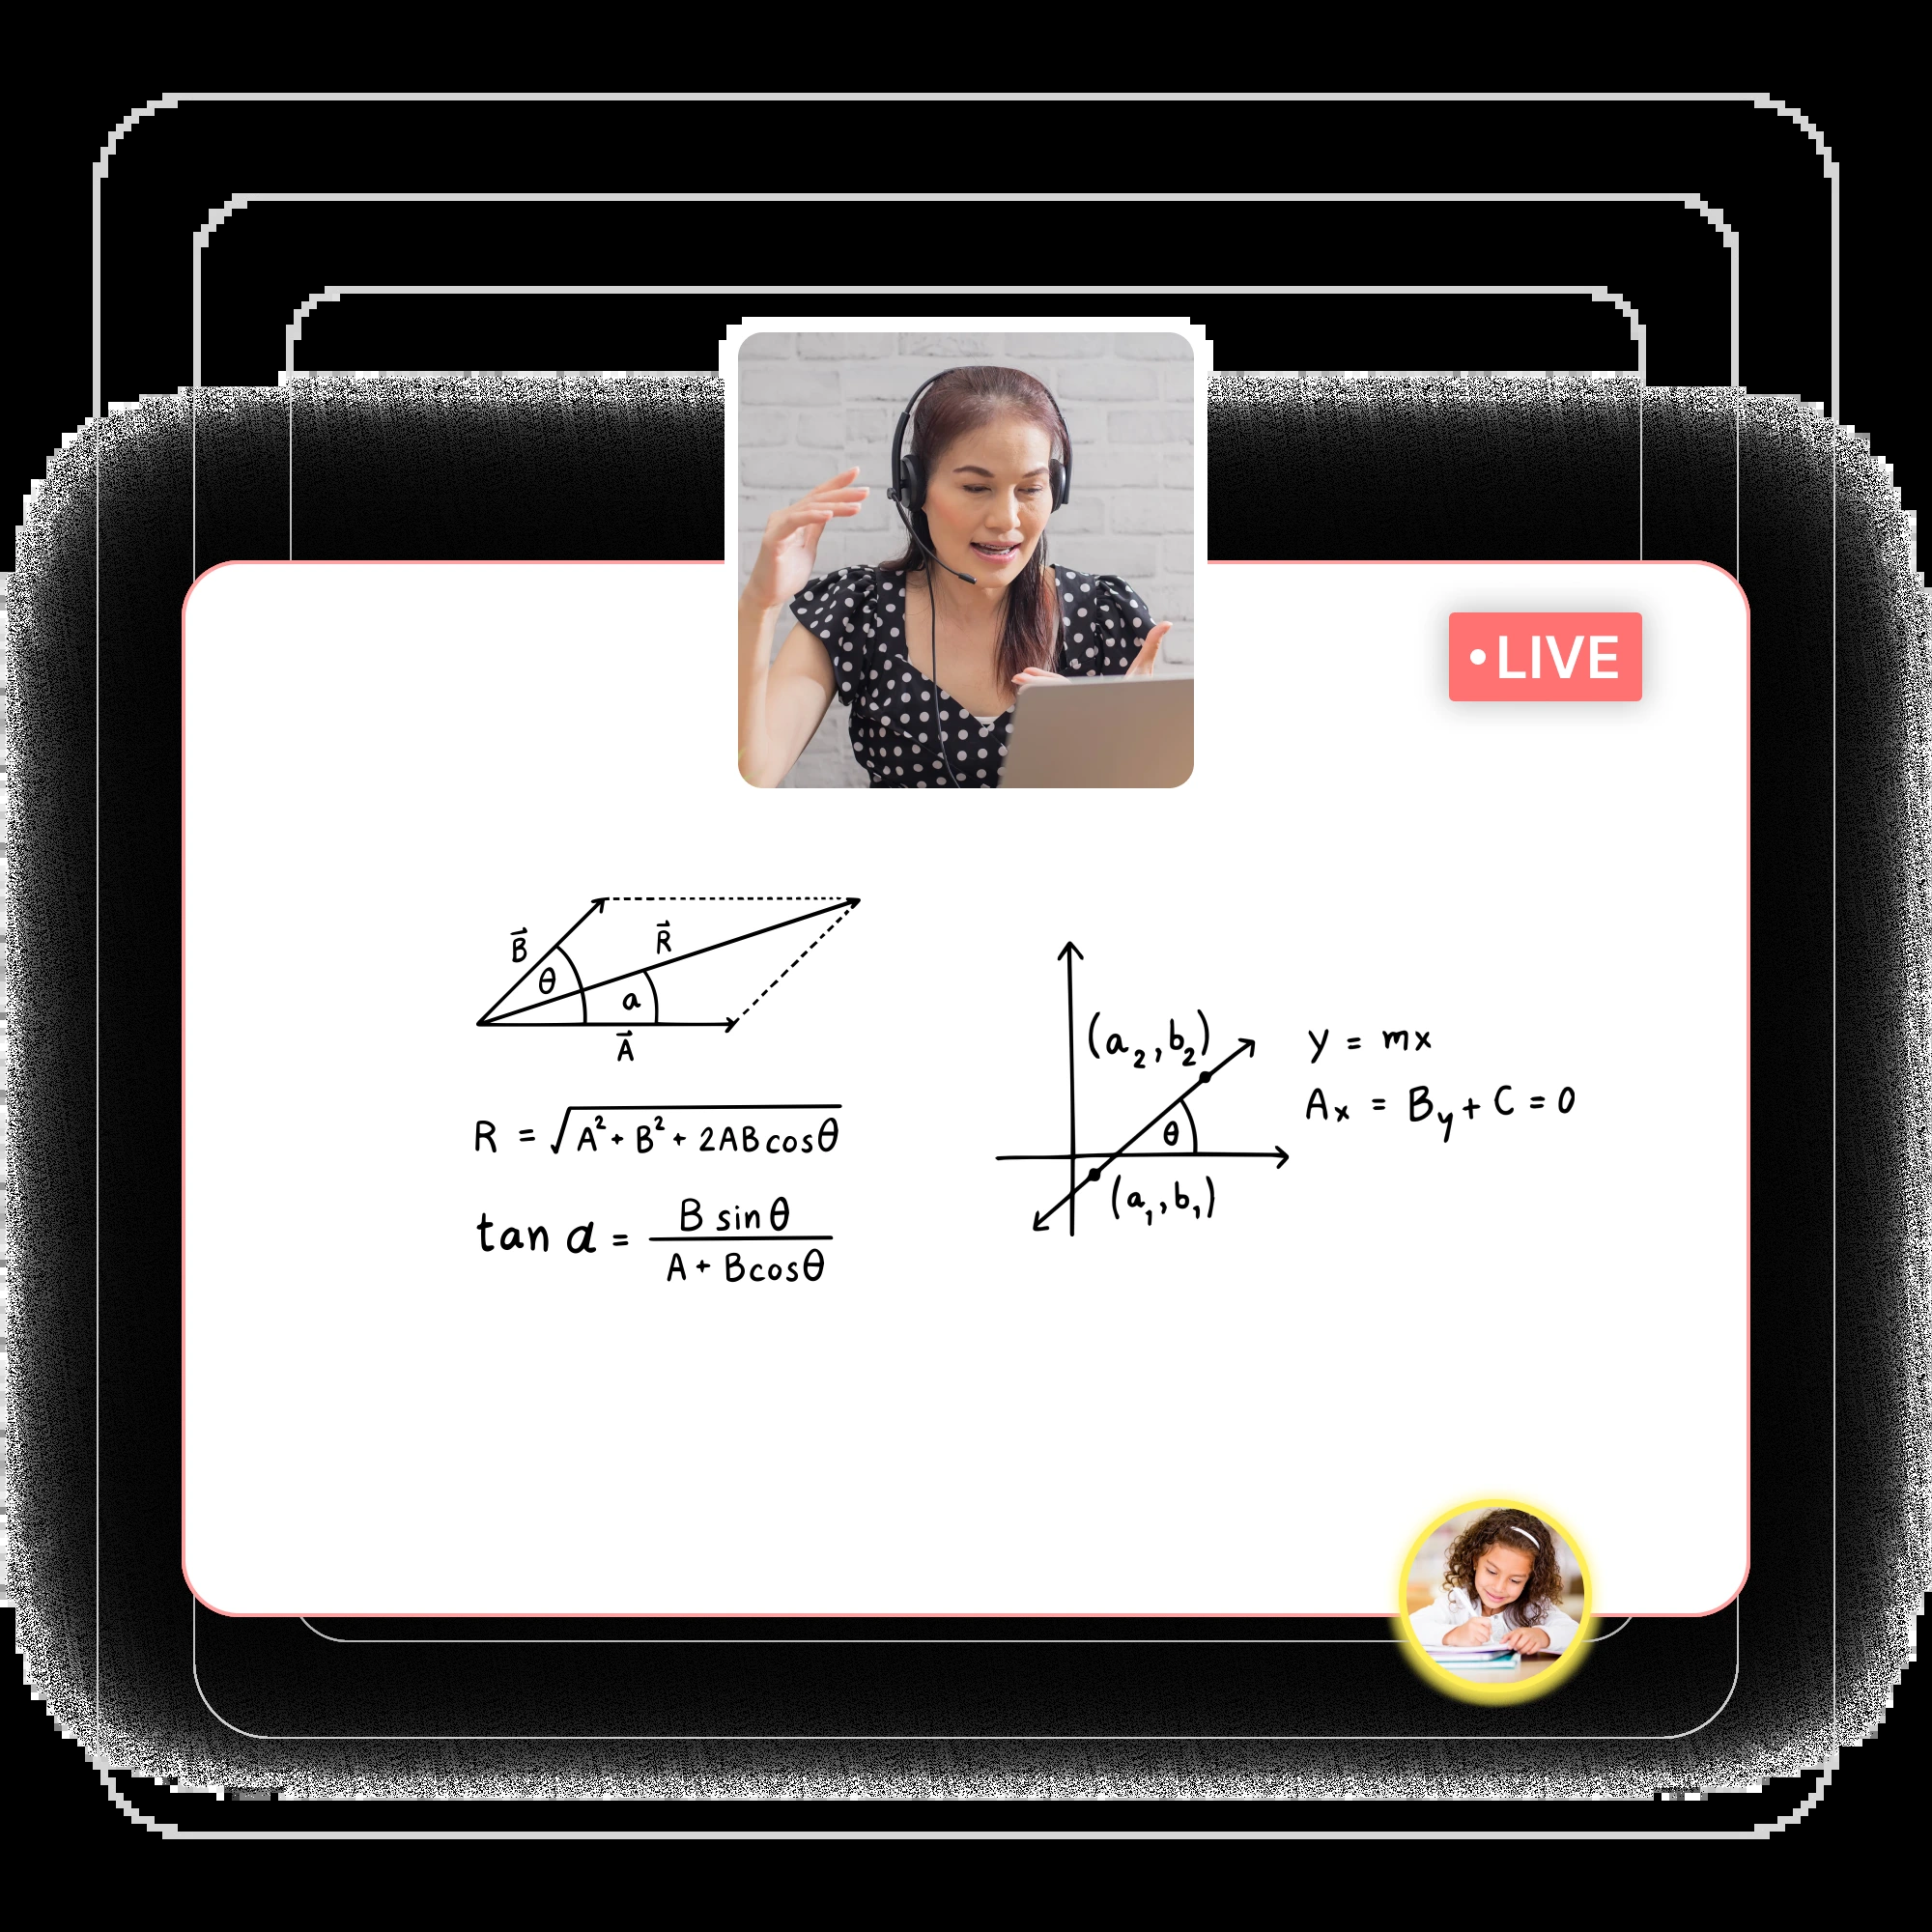 LIVE
B⃗
R⃗
θ
a
A⃗
R = √A² + B² + 2AB cosθ
tan a = B sin θ / A + B cosθ
(a₂, b₂)
θ
(a₁, b₁)
y = mx
Aₓ = Bᵧ + C = 0